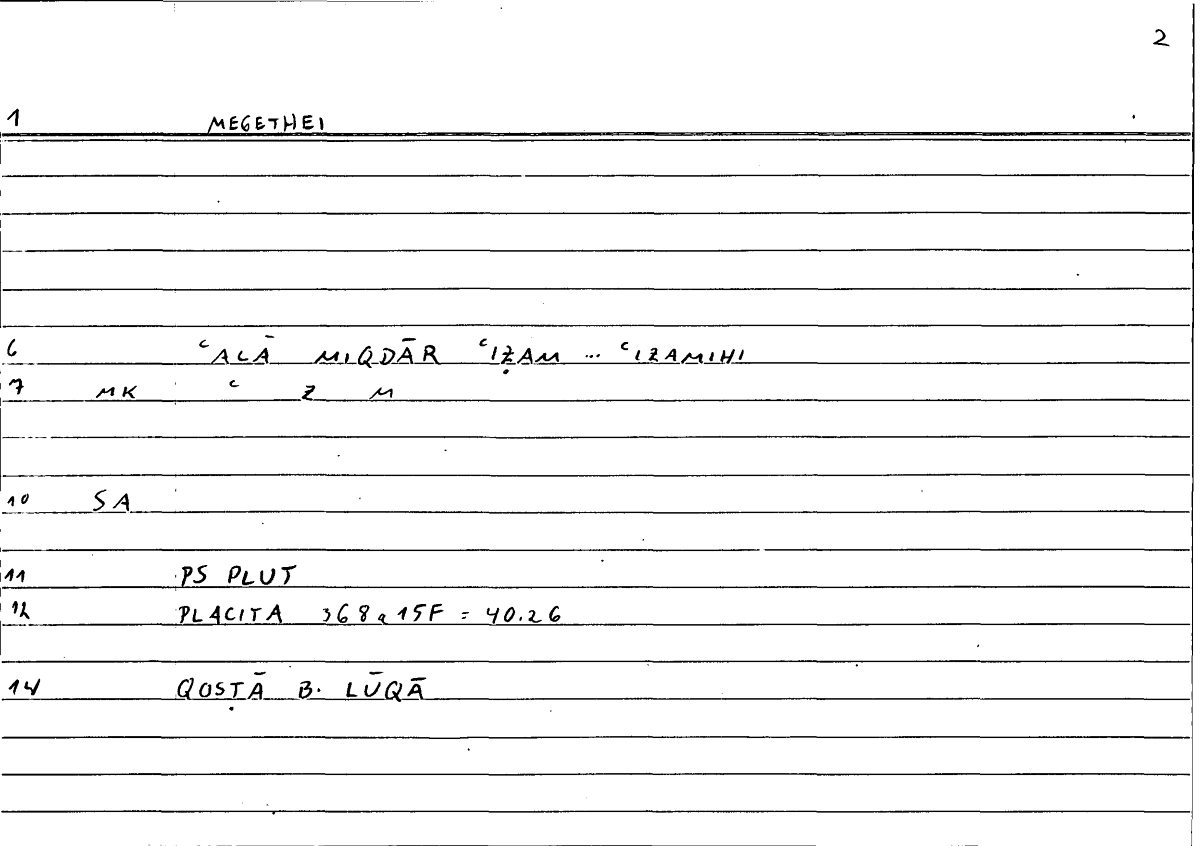 2
1 MEGETHEI
6 ʿALĀ MIQDĀR ʿIẒAM ... ʿIZAMIHI
7 MK ʿ Z M
10 SA
11 PS PLUT
12 PLACITA 368a15F = 40.26
14 QOSṬĀ B. LŪQĀ